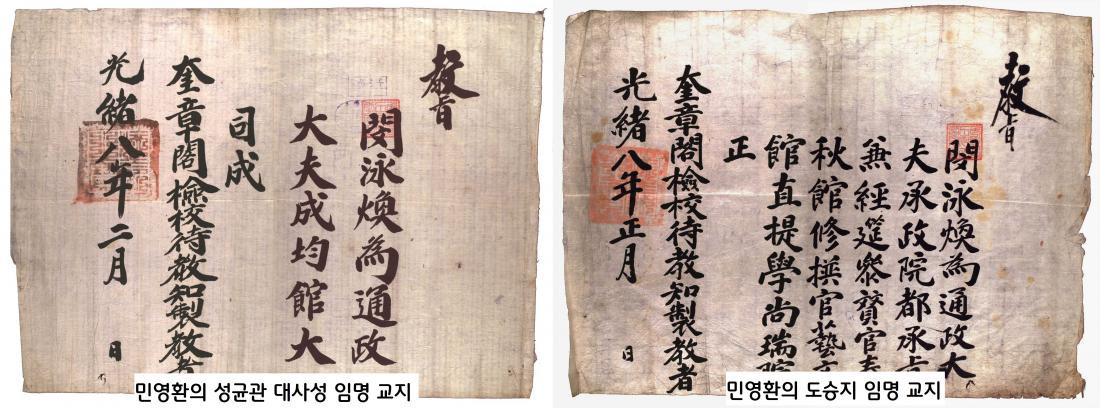 教旨
閔泳煥為通政
大夫成均館大
司成
奎章閣檢校待教知製教者
光緒八年二月 日
민영환의 성균관 대사성 임명 교지
教旨
閔泳煥為通政大
夫承政院都承旨
兼經筵參贊官春
秋館修撰官藝文
館直提學尚瑞院
正
奎章閣檢校待教知製教者
光緒八年正月 日
민영환의 도승지 임명 교지